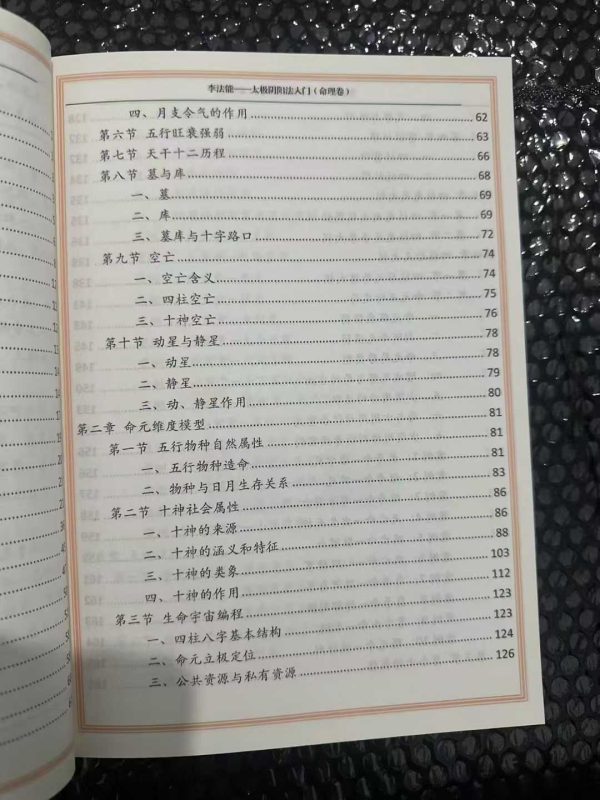 李法能——太极阴阳法入门(命理卷)
四、月支令气的作用 62
第六节 五行旺衰强弱 63
第七节 天干十二历程 66
第八节 墓与库 68
一、墓 69
二、库 69
三、墓库与十字路口 72
第九节 空亡 74
一、空亡含义 74
二、四柱空亡 75
三、十神空亡 76
第十节 动星与静星 78
一、动星 78
二、静星 79
三、动、静星作用 80
第二章 命元维度模型 81
第一节 五行物种自然属性 81
一、五行物种造命 81
二、物种与日月生存关系 83
第二节 十神社会属性 86
一、十神的来源 86
二、十神的涵义和特征 88
三、十神的类象 103
四、十神的作用 112
第三节 生命宇宙编程 123
一、四柱八字基本结构 123
二、命元立极定位 124
三、公共资源与私有资源 126